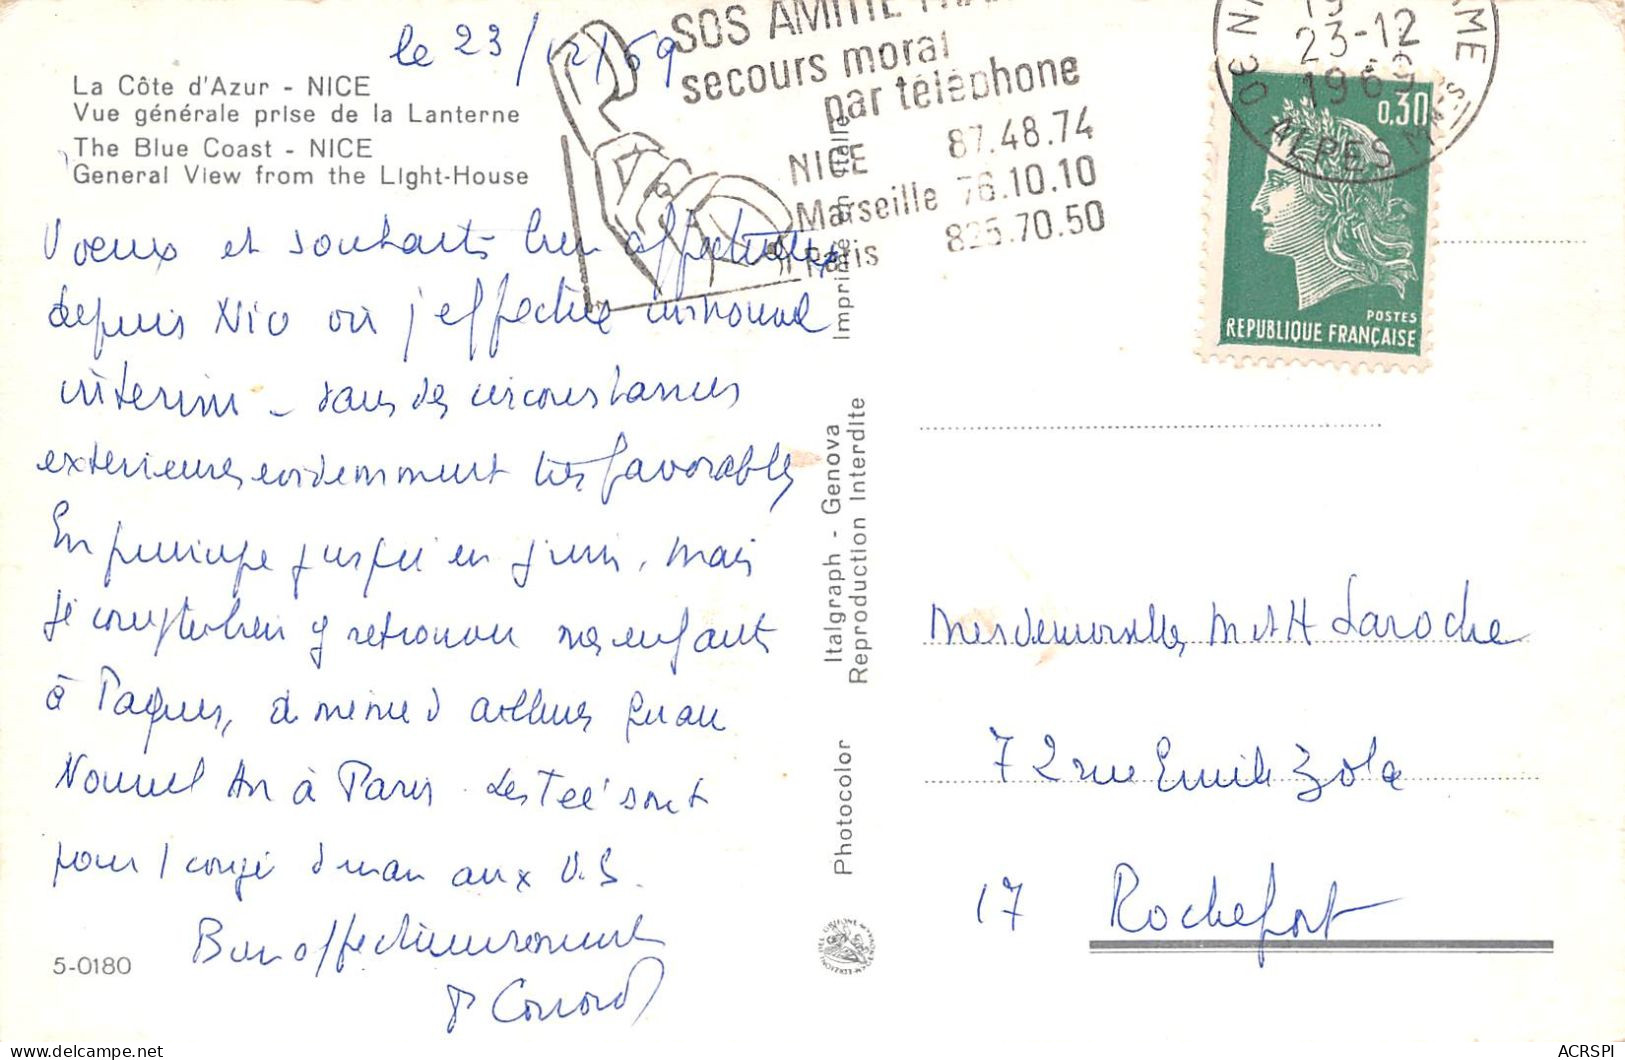 le 23/12/69
La Côte d'Azur - NICE
Vue générale prise de la Lanterne
The Blue Coast - NICE
General View from the Light-House
Voeux et souhaits bien affectueux
depuis Nice où j'effectue un nouvel
intérim - dans des circonstances
exterieures evidemment très favorables
En principe jusqu'en juin, mais
je compte bien y retrouver mes enfants
à Paques, de même d'ailleurs qu'au
Nouvel An à Paris. sont
pour 1 congé d'un an aux U.S.
Bien affectueusement
Conord
5-0180
SOS AMITIE FRA
secours moral
par téléphone
NICE 87.48.74
Marseille 76.10.10
Paris 825.70.50
23-12
1969
ALPES M
0,30
POSTES
REPUBLIQUE FRANÇAISE
Photocolor Italgraph - Genova Imprimé en Italie
Reproduction Interdite
Mesdemoiselles M et H Laroche
72 rue Emile Zola
17 Rochefort
ACRSPI
delcampe.net